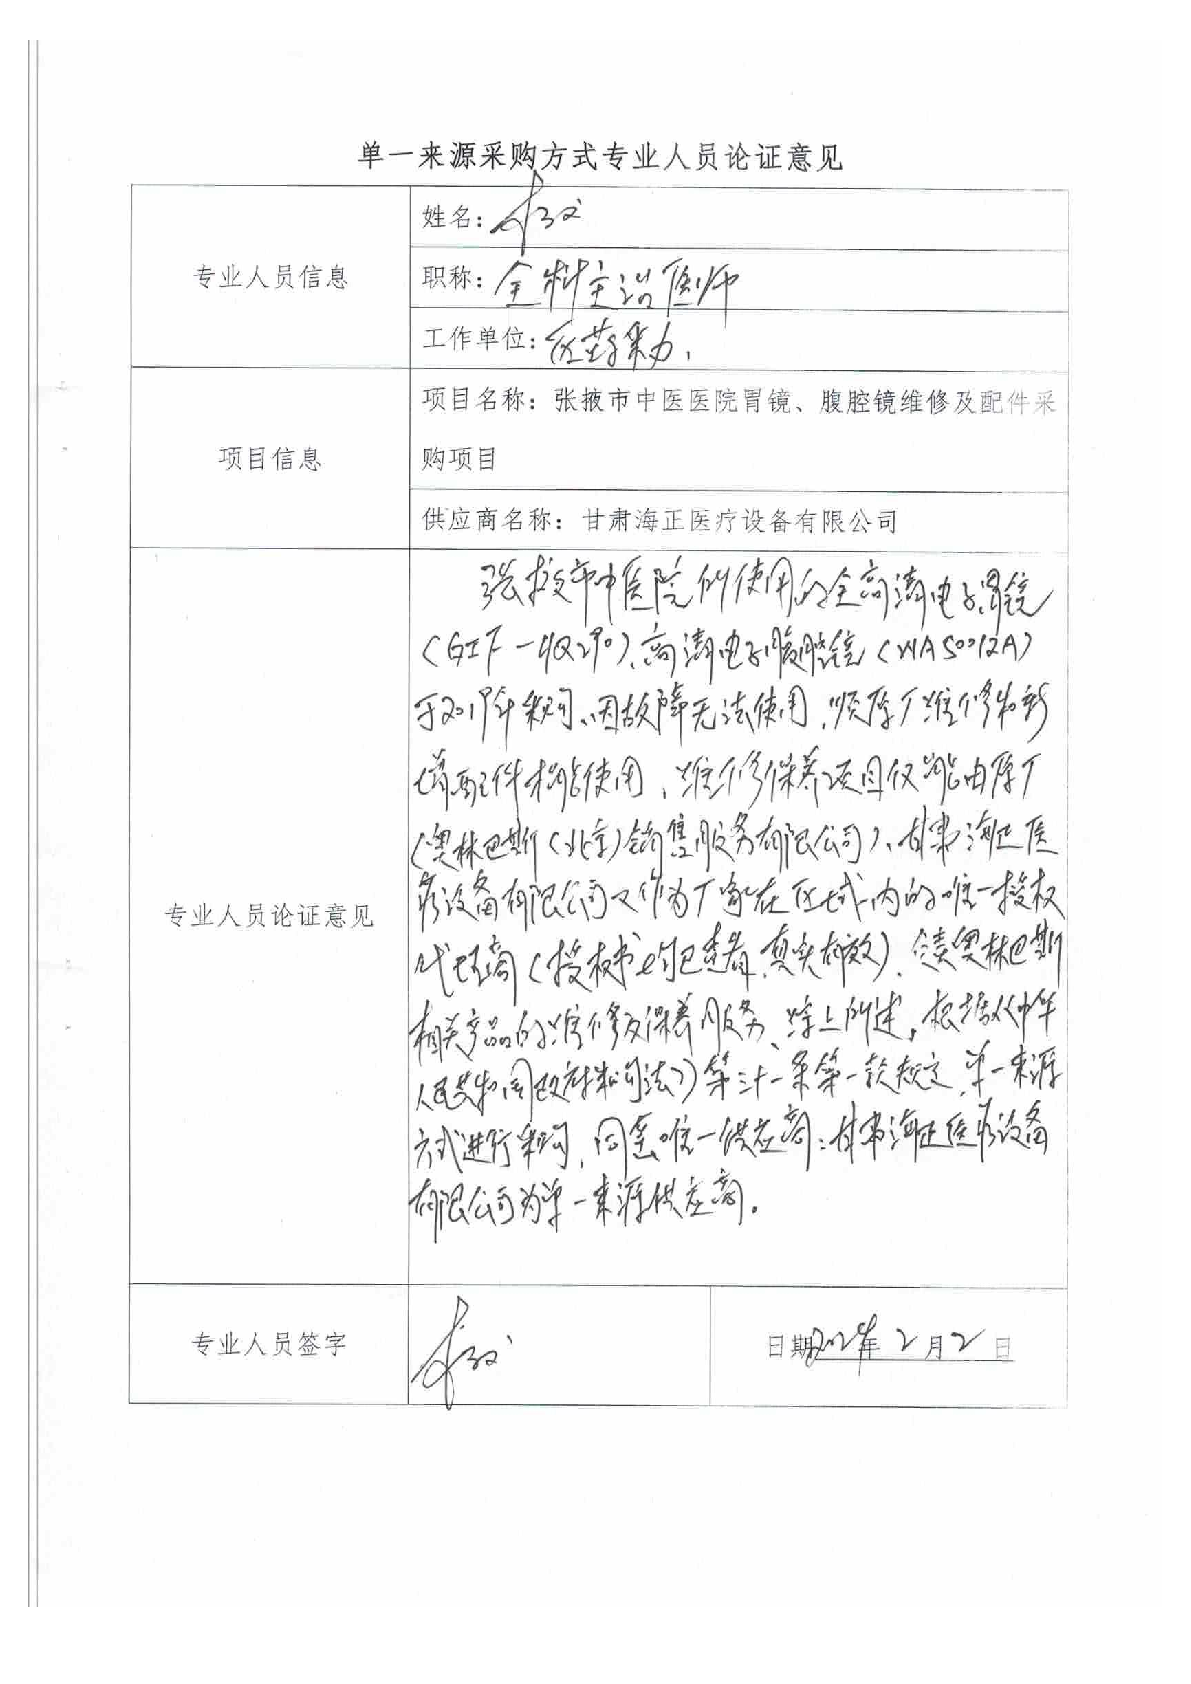 单一来源采购方式专业人员论证意见
专业人员信息
姓名:
职称: 全科主治医师
工作单位: 医药采办
项目信息
项目名称: 张掖市中医医院胃镜、腹腔镜维修及配件采
购项目
供应商名称: 甘肃海正医疗设备有限公司
专业人员论证意见
张掖市中医医院所使用的全高清电子胃镜
(GIF-HQ290)、高清电子腹腔镜(WA50012A)
于2019年采购、因故障无法使用,须原厂维修和新
增配件才能使用,维修保养项目仅能由原厂
(奥林巴斯(北京)销售服务有限公司)、甘肃海正医
疗设备有限公司又作为厂家在区域内的唯一授权
代理商(授权书已查看,真实有效),负责奥林巴斯
相关产品的维修及保养服务、综上所述,根据《中华
人民共和国政府采购法》第三十一条第一款规定,单一来源
方式进行采购,同意唯一供应商:甘肃海正医疗设备
有限公司为单一来源供应商。
专业人员签字
日期 年2月2日